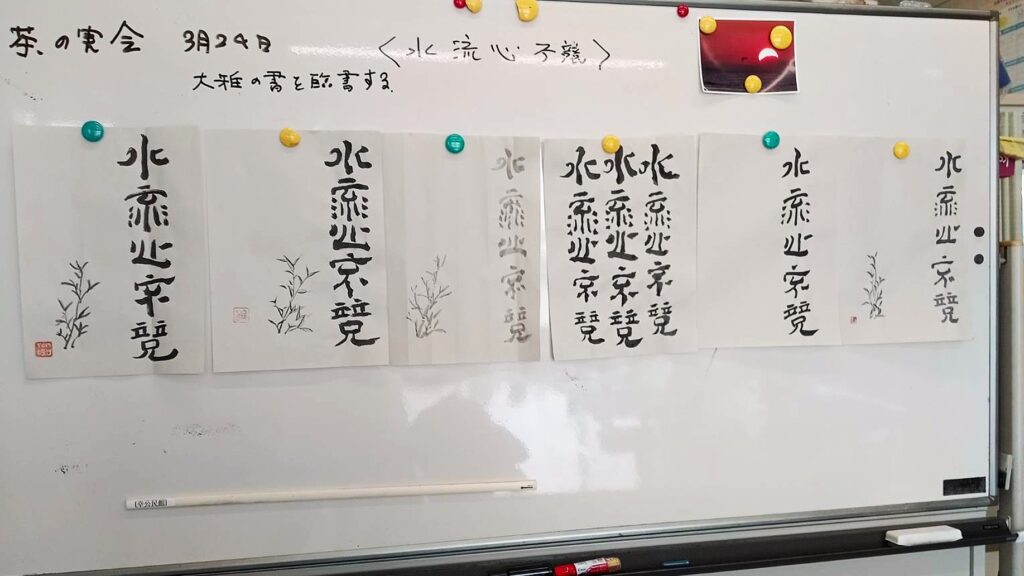 茶の実会 3月24日 〈水流心不競〉
大雅の書を臨書する
水流心不競
水流心不競
水流心不競
水流心不競
水流心不競
水流心不競
水流心不競
水流心不競